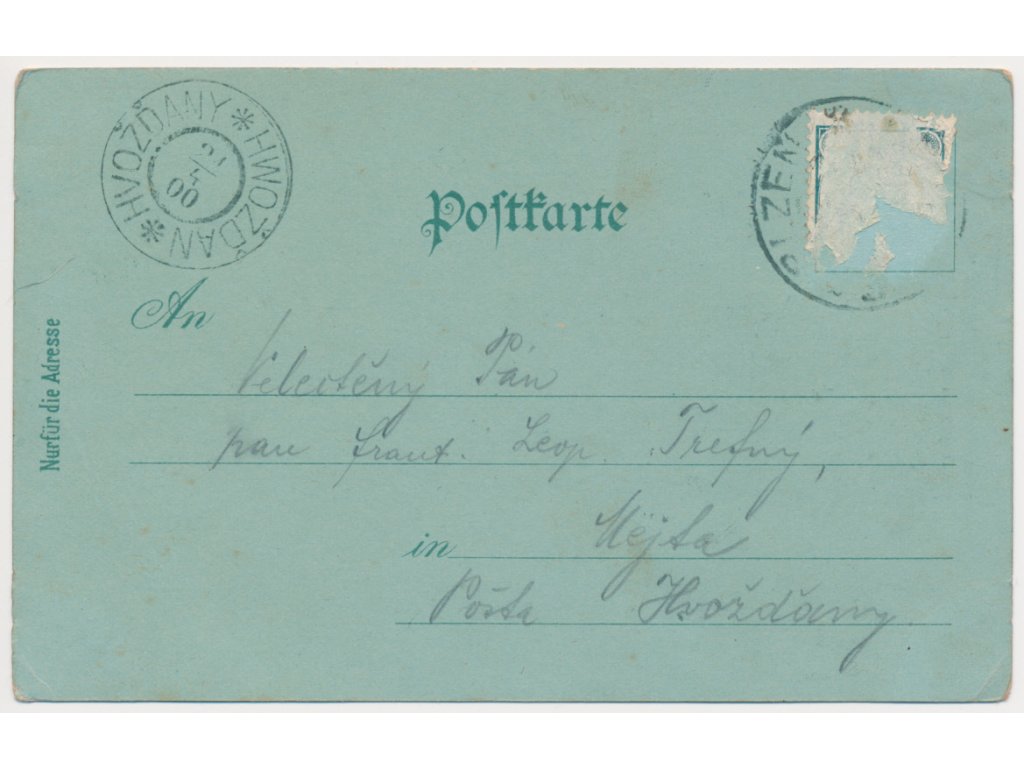 HVOŽĎANY * HWOŽĎAN *
21/4 00
PLZEŇ
Postkarte
An
Velectěný Pán
pan Frant. Leop. Trefný,
in Mějta
Pošta Hvožďány
Nur für die Adresse